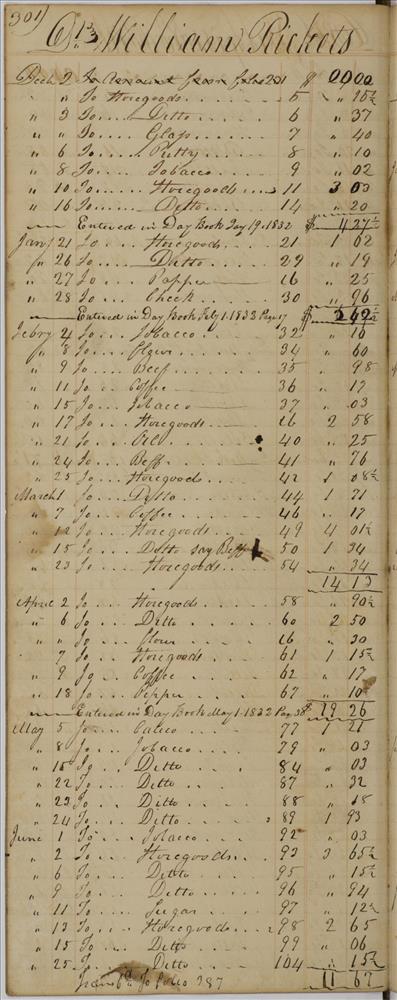 301
Dr William Rickets
Dech 2 To Amount from folio 201 $ 00,00
" " To Storegoods 5 " 15½
" 3 To Ditto 6 " 37
" " To Glass 7 " 40
" 6 To Putty 8 " 10
" 8 To Tobacco 9 " 02
" 10 To Storegoods 11 3 03
" 16 To Ditto 14 " 20
Entered in Day Book Jay 19. 1832 $ 4 27½
Jany 21 To Storegoods 21 1 62
" 26 To Ditto 29 " 19
" 27 To Pepper 16 " 25
" 28 To Check 30 " 96
Entered in Day Book Feby 1. 1832 Page 17 $
Febry 4 To Tobacco 32 " 10
" 8 To Flower 34 " 60
" 9 To Beef 35 " 98
" 11 To Coffee 36 " 17
" 15 To Tobacco 37 " 03
" 17 To Storegoods 16 2 58
" 21 To Oil 40 " 25
" 24 To Beff 41 " 76
" 25 To Storegoods 42 1 08½
March 1 To Ditto 44 1 71
" 7 To Coffee 46 " 17
" 12 To Storegoods 49 4 01½
" 15 To Ditto say Beff 50 1 34
" 23 To Storegoods 54 " 34
14 13
Aprile 2 To Storegoods 58 " 90½
" 6 To Ditto 60 2 50
" " To Flour 16 " 30
" 7 To Storegoods 61 1 15½
" 9 To Coffee 62 " 17
" 18 To Pepper 67 " 10
Entered in Day Book May 1. 1832 Pag 38 $ 19 26
May 5 To Calico 77 1 27
" 8 To Tobacco 79 " 03
" 15 To Ditto 84 " 03
" 22 To Ditto 87 " 32
" 23 To Ditto 88 " 18
" 24 To Ditto 89 1 93
June 1 To Tobacco 92 " 03
" 2 To Storegoods 93 3 65½
" 6 To Ditto 95 " 15½
" 9 To Ditto 96 " 94
" 11 To Sugar 97 " 12½
" 13 To Storegoods 98 2 65
" 15 To Ditto 99 " 06
" 25 To Ditto 104 " 15½
Transd To Folio 387 11 67